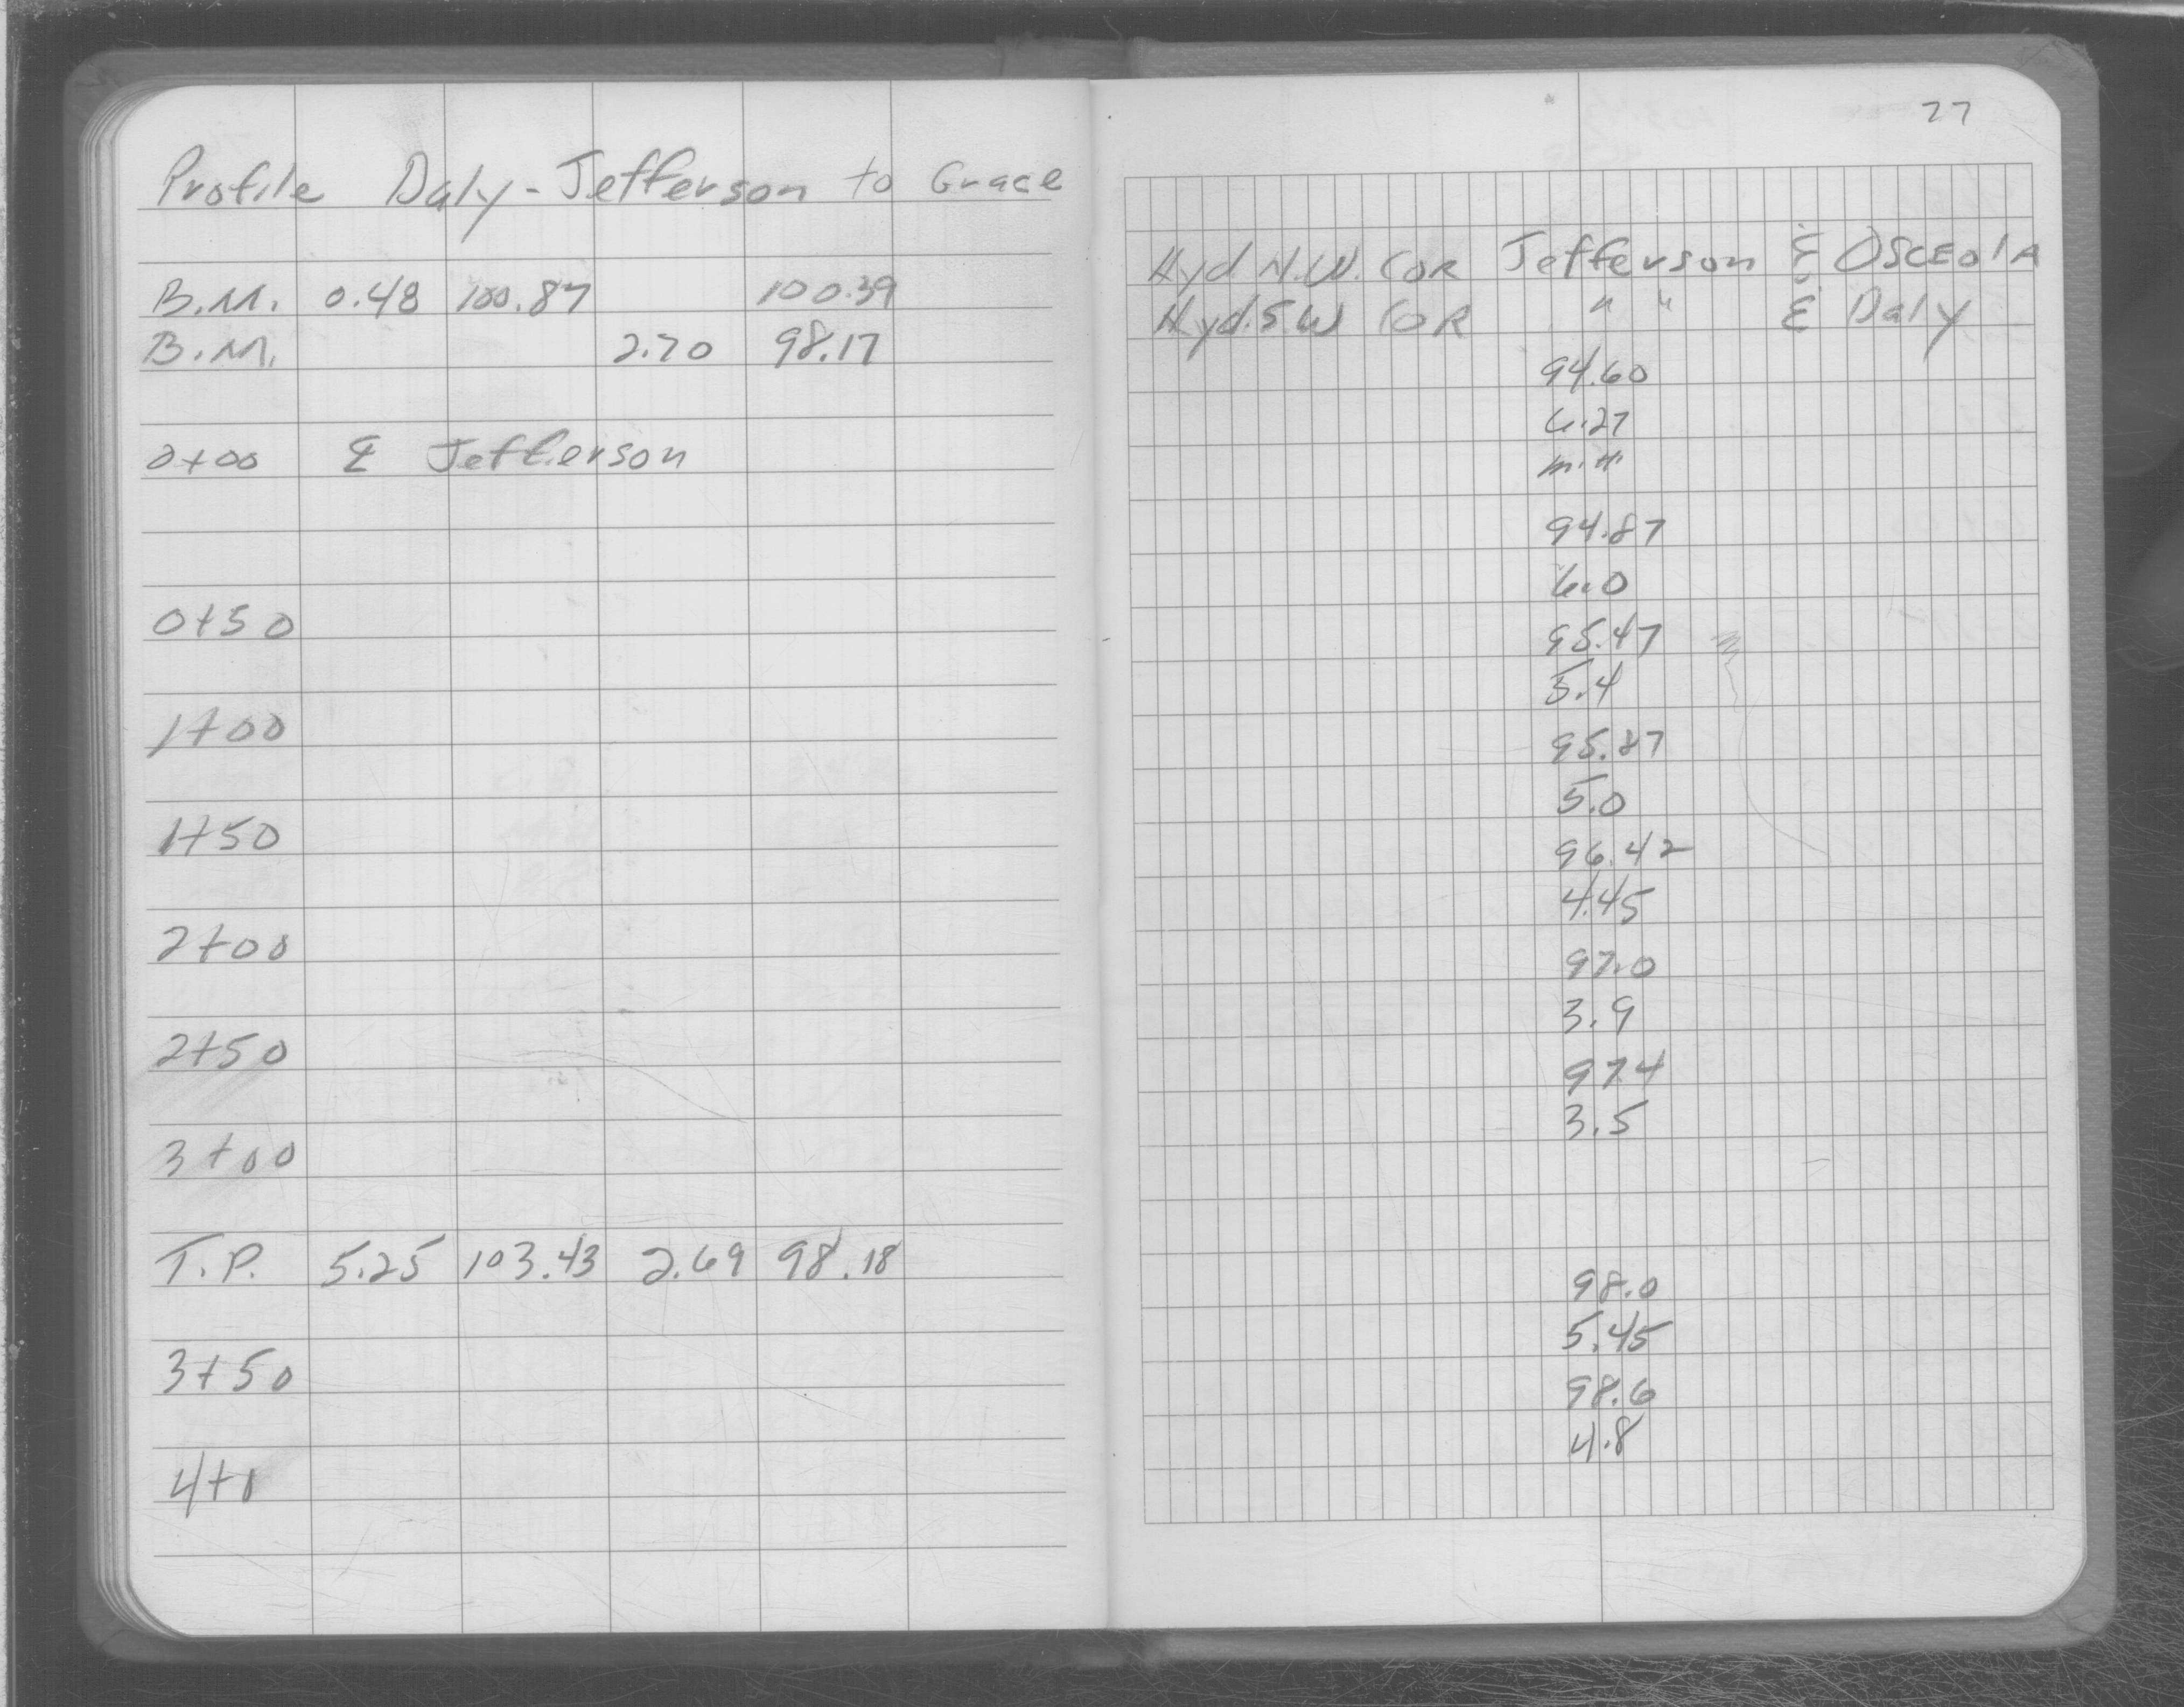 Profile Daly - Jefferson to Grace
B.M. 0.48 100.87 100.39
B.M. 2.70 98.17
0+00 ℄ Jefferson
0+50
1+00
1+50
2+00
2+50
3+00
T.P. 5.25 103.43 2.69 98.18
3+50
4+0
27
Hyd. N.W. COR Jefferson & OSCEOlA
Hyd. S W COR " " & Daly
94.60
6.27
m.H.
94.87
6.0
95.47
5.4
95.87
5.0
96.42
4.45
97.0
3.9
97.4
3.5
98.0
5.45
98.6
4.8